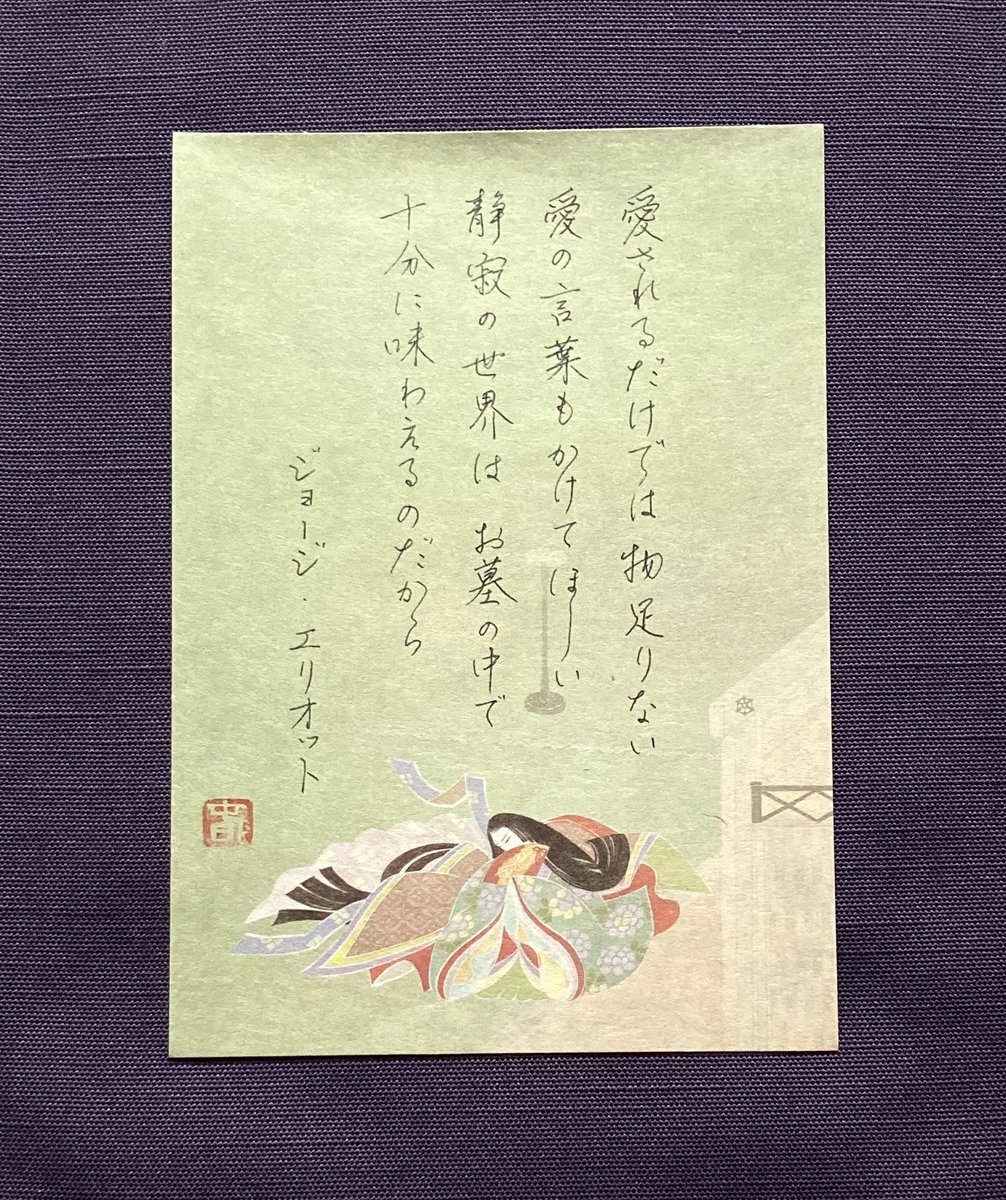 愛されるだけでは 物足りない
愛の言葉もかけてほしい
静寂の世界は お墓の中で
十分に味わえるのだから
ジョージ・エリオット